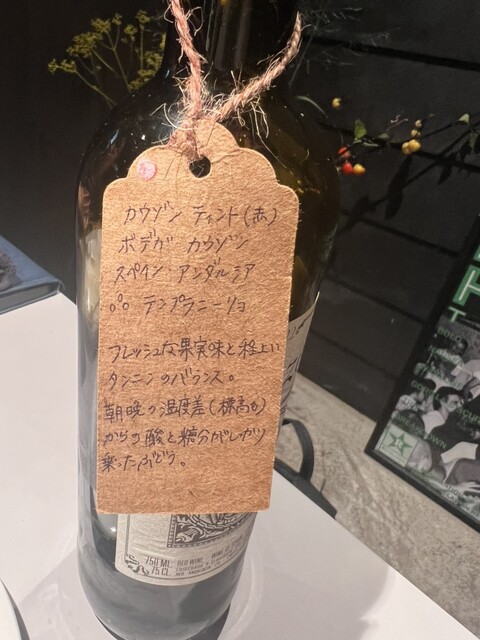 カウゾン ティント(赤)
ボデガ カウゾン
スペイン アンダルシア
テンプラニーリョ
フレッシュな果実味と程よい
タンニンのバランス。
朝晩の温度差(標高も)
からの酸と糖分がしっかり
乗ったぶどう。
750 ML
75 CL
RED WINE